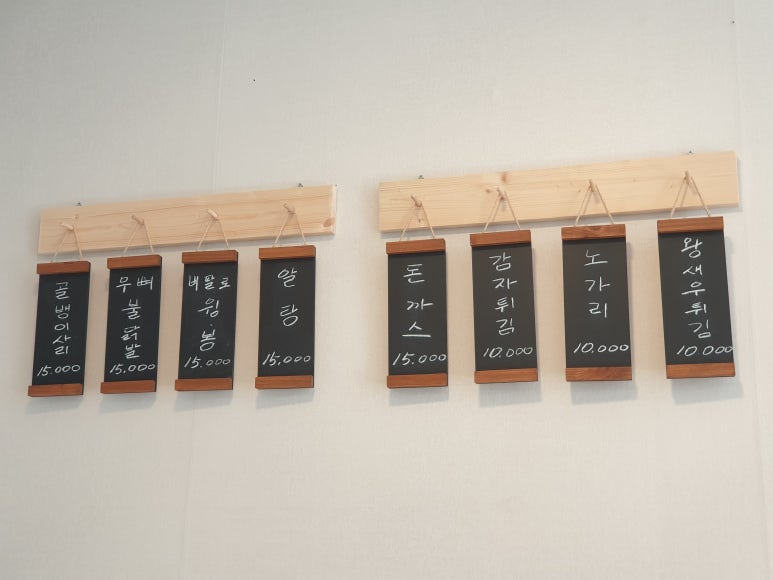 골
뱅
이
사리
15.000
무뼈
불
닭
발
15,000
버팔로
윙.
봉
15.000
알
탕
15,000
돈
까
스
15.000
감
자
튀
김
10.000
노
가
리
10,000
왕
새
우
튀
김
10.000